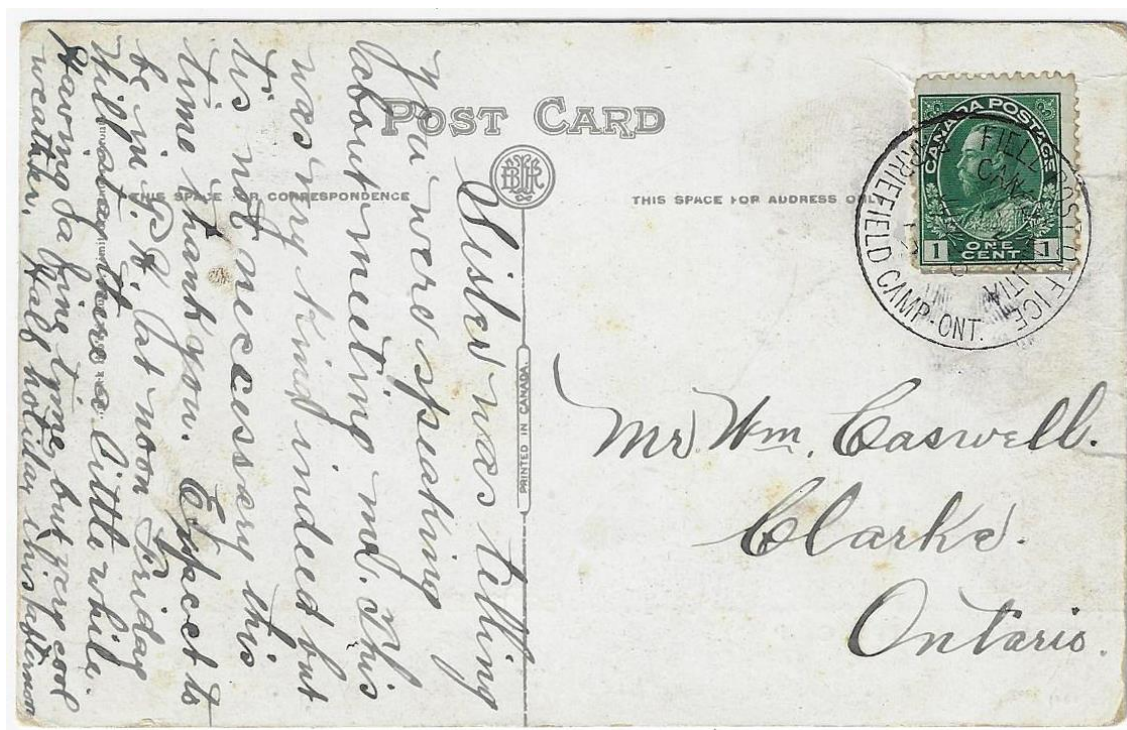 POST CARD
THIS SPACE FOR CORRESPONDENCE
THIS SPACE FOR ADDRESS ONLY
PRINTED IN CANADA.
CANADA POSTAGE
1 ONE CENT 1
FIELD POST OFFICE
BARRIEFIELD CAMP-ONT.
FIELD
Mr. Wm. Caswell.
Clarke.
Ontario.
Sister was telling
you were speaking
about meeting me. This
was very kind indeed but
tis not necessary this
time thank you. Expect to
be in P.H. at noon Friday
Will stay there a little while.
Having a fine time, but very cool
weather, Half holiday this afternoon